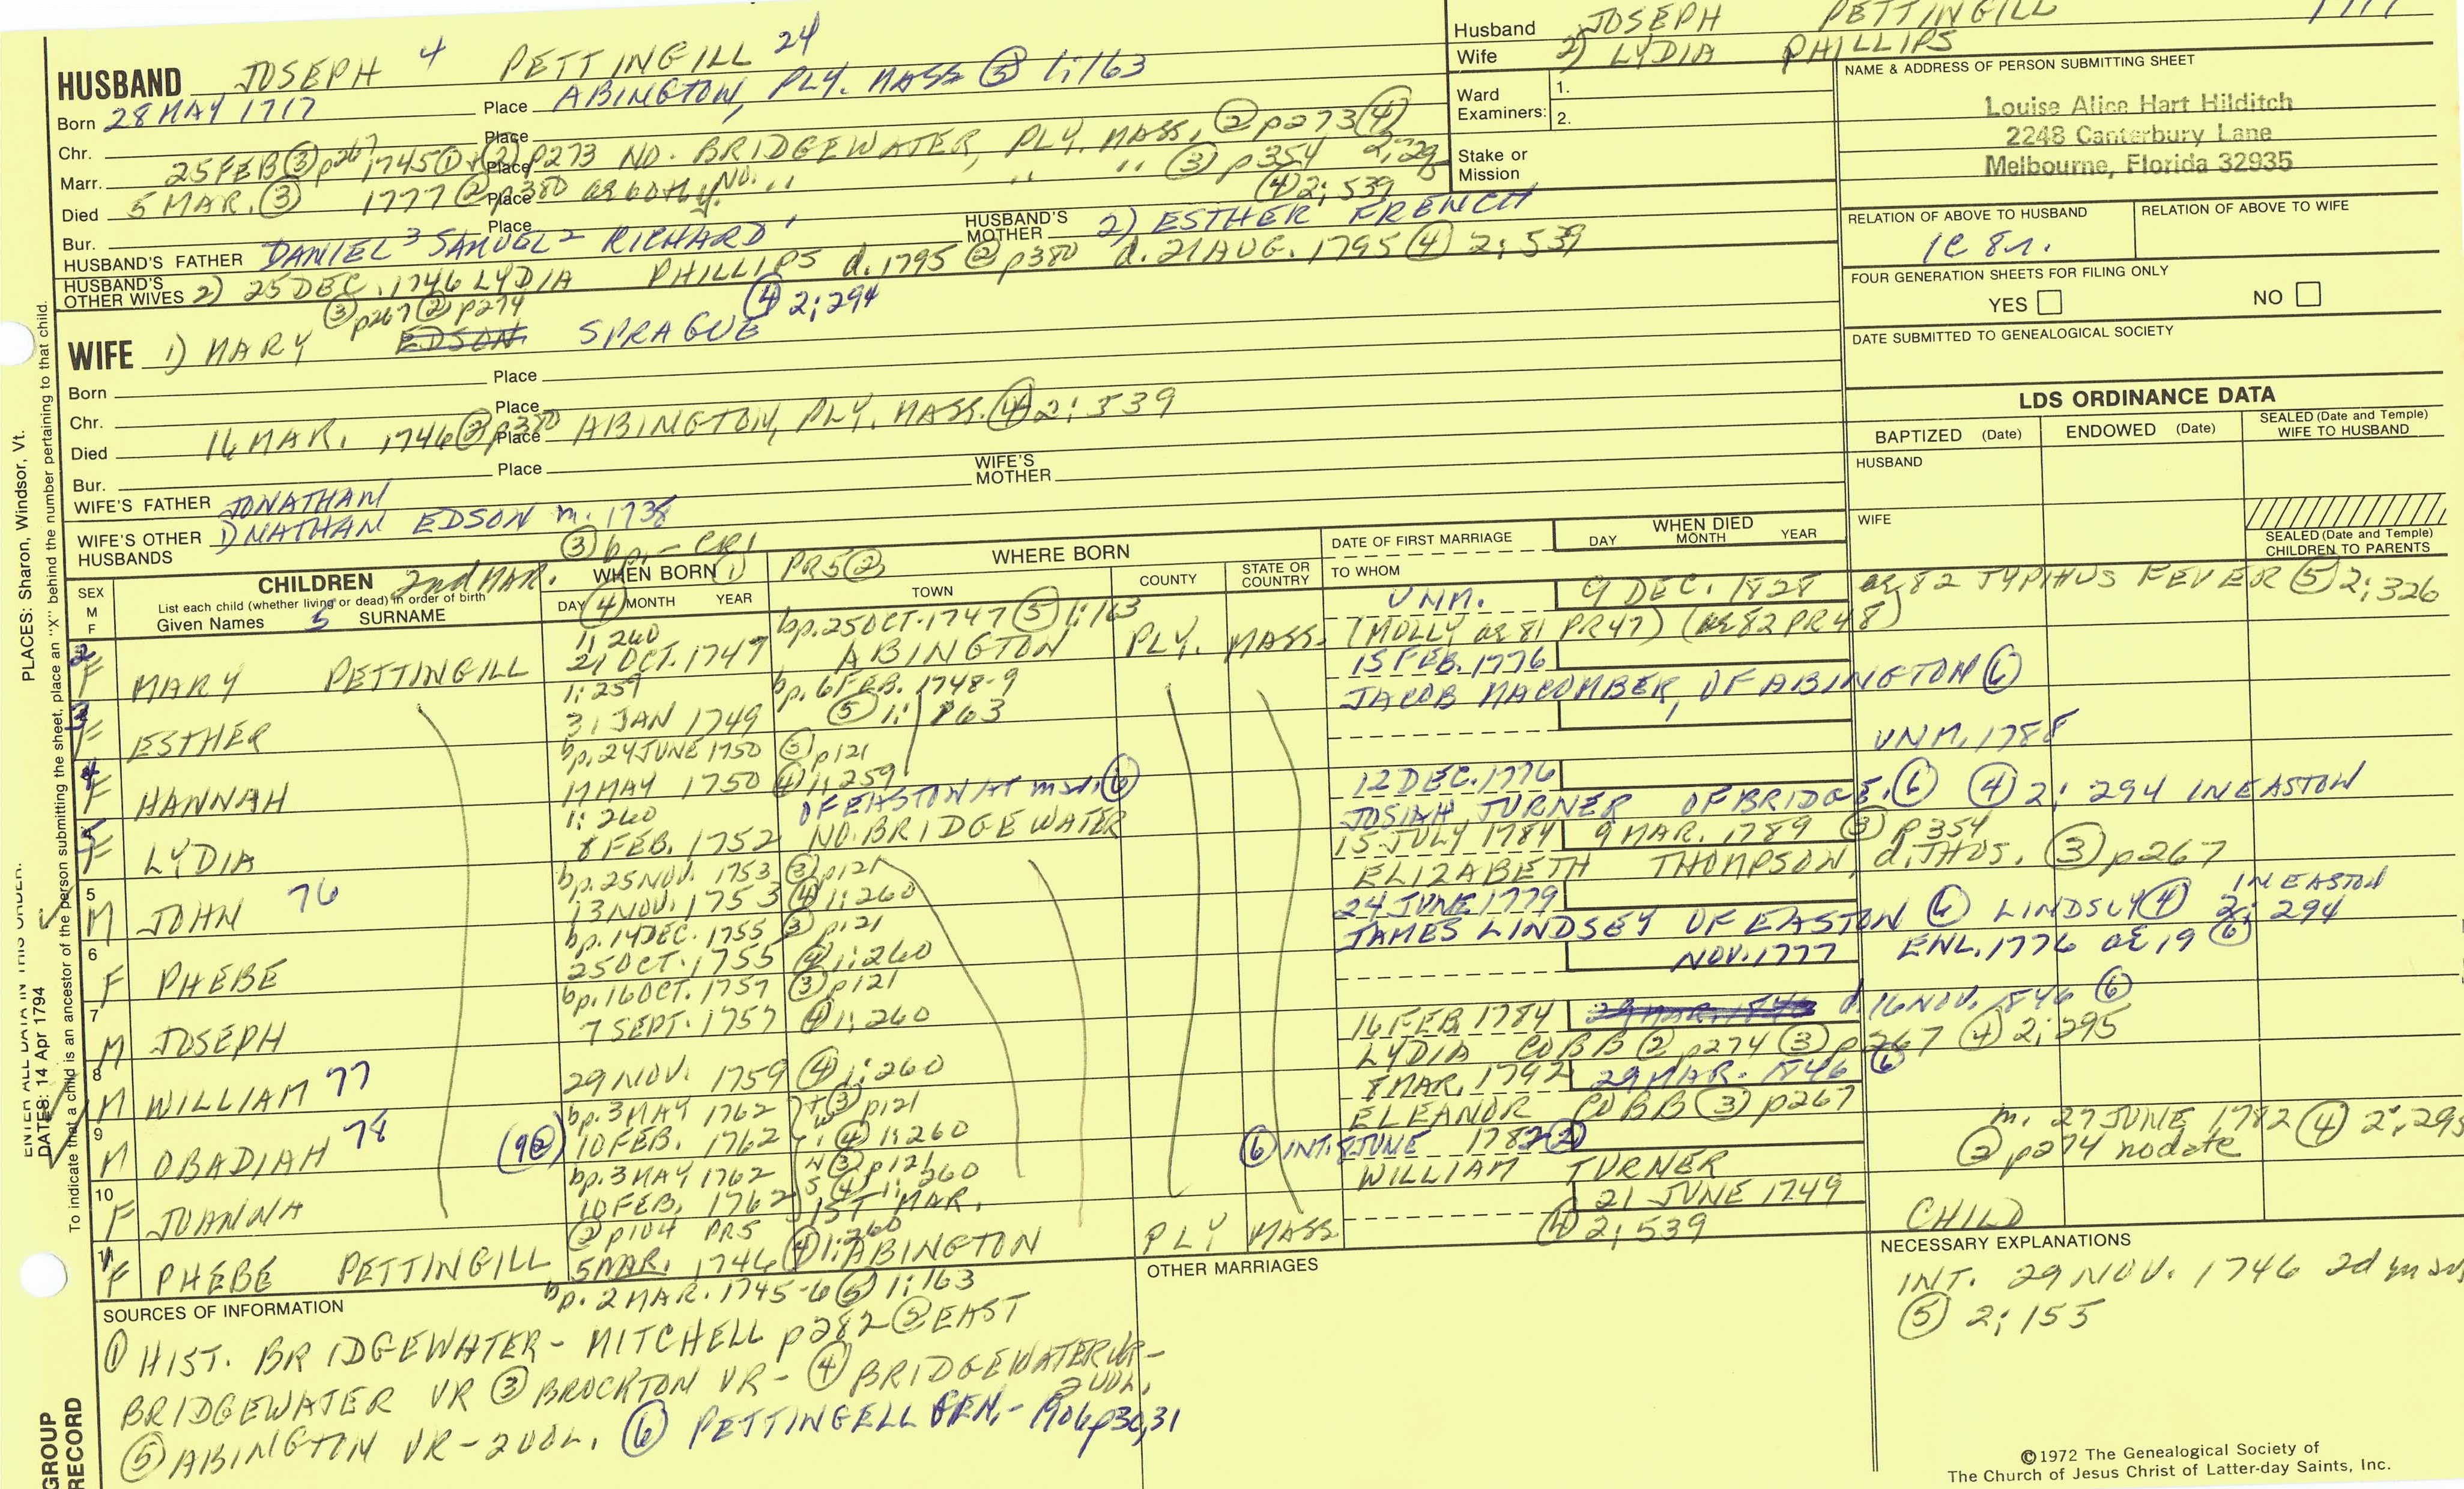 HUSBAND JOSEPH 4 PETTINGILL 24
Born 28 MAY 1717 Place ABINGTON, PLY. MASS ⑤ 1:163
Chr. Place
Marr. 25 FEB ③ p267 1745 ① + ② p273 Place NO. BRIDGEWATER, PLY. MASS, ② p273 ④ 2:29
Died 5 MAR. ③ 1777 ② p380 Place ae 60th y. NO. " " " ③ p354 ④ 2:539
Bur. Place
HUSBAND'S FATHER DANIEL 3 SAMUEL 2 RICHARD 1 HUSBAND'S MOTHER 2) ESTHER FRENCH
HUSBAND'S OTHER WIVES 2) 25 DEC. 1746 LYDIA PHILLIPS d. 1795 ② p380 d. 21 AUG. 1795 ④ 2:539
③ p267 ② p274 ④ 2:294
WIFE 1) MARY EDSON SPRAGUE
Born Place
Chr. Place
Died 16 MAR. 1746 ② p380 Place ABINGTON, PLY. MASS. ④ 2:539
Bur. Place
WIFE'S FATHER JONATHAN WIFE'S MOTHER
WIFE'S OTHER HUSBANDS 1) NATHAN EDSON m. 1738
Husband JOSEPH PETTINGILL 1717
Wife 2) LYDIA PHILLIPS
Ward Examiners: 1.
2.
Stake or Mission
NAME & ADDRESS OF PERSON SUBMITTING SHEET
Louise Alice Hart Hilditch
2248 Canterbury Lane
Melbourne, Florida 32935
RELATION OF ABOVE TO HUSBAND RELATION OF ABOVE TO WIFE
1C 8r.
FOUR GENERATION SHEETS FOR FILING ONLY
YES NO
DATE SUBMITTED TO GENEALOGICAL SOCIETY
LDS ORDINANCE DATA
BAPTIZED (Date) ENDOWED (Date) SEALED (Date and Temple) WIFE TO HUSBAND
HUSBAND
WIFE
SEALED (Date and Temple) CHILDREN TO PARENTS
③ bp. - CR1
SEX M F CHILDREN 2nd MAR. WHEN BORN ① PR5 ② WHERE BORN DATE OF FIRST MARRIAGE WHEN DIED
List each child (whether living or dead) in order of birth
Given Names 5 SURNAME DAY ④ MONTH YEAR TOWN COUNTY STATE OR COUNTRY TO WHOM DAY MONTH YEAR
1:240 bp. 25 OCT. 1747 ⑤ 1:163 UNM. 9 DEC. 1828 ae 82 TYPHUS FEVER ⑤ 2:326
2 F MARY PETTINGILL 21 OCT. 1747 ABINGTON PLY. MASS. (MOLLY ae 81 PR47) (ae 82 PR48)
1:259 bp. 6 FEB. 1748-9 15 FEB. 1776
3 F ESTHER 31 JAN 1749 ⑤ 1:163 JACOB MACOMBER, OF ABINGTON ⑥
bp. 24 JUNE 1750 ③ p121 UNM. 1788
4 F HANNAH 17 MAY 1750 ④ 1:259
1:260 OF EASTON AT mar. ⑥ 12 DEC. 1776
5 F LYDIA 8 FEB. 1752 NO. BRIDGEWATER JOSIAH TURNER OF BRIDGE. ⑥ ④ 2:294 IN EASTON
bp. 25 NOV. 1753 ③ p121 15 JULY 1784 9 MAR. 1789 ③ p354
5 M JOHN 76 13 NOV. 1753 ④ 1:260 ELIZABETH THOMPSON, d. THOS. ③ p267
bp. 14 DEC. 1755 ③ p121 24 JUNE 1779 IN EASTON
6 F PHEBE 25 OCT. 1755 ④ 1:260 JAMES LINDSEY OF EASTON ⑥ LINDSLY ④ 2:294
bp. 16 OCT. 1757 ③ p121 NOV. 1777 ENL. 1776 ae 19 ⑥
7 M JOSEPH 7 SEPT. 1757 ④ 1:260
16 FEB 1784 29 MAR. 1846 d. 16 NOV. 1846 ⑥
8 M WILLIAM 77 29 NOV. 1759 ④ 1:260 LYDIA COBB ② p274 ③ p267 ④ 2:295
bp. 3 MAY 1762 ③ p121 8 MAR. 1792 29 MAR. 1846 ⑥
9 M OBADIAH 78 (9②) 10 FEB. 1762 ④ 1:260 ELEANOR COBB ③ p267
bp. 3 MAY 1762 ③ p121 ⑥ INT. 8 JUNE 1782 ② m. 27 JUNE 1782 ④ 2:295
10 F JOANNA 10 FEB. 1762 ④ 1:260 WILLIAM TURNER ② p274 no date
TWNS
② p104 PR5 1ST MAR. 21 JUNE 1749
1 F PHEBE PETTINGILL 5 MAR. 1746 ④ 1:260 ABINGTON PLY MASS ④ 2:539 CHILD
bp. 2 MAR. 1745-6 ⑤ 1:163
SOURCES OF INFORMATION
① HIST. BRIDGEWATER - MITCHELL p282 ② EAST
BRIDGEWATER VR ③ BROCKTON VR - ④ BRIDGEWATER VR - 2 VOL.
⑤ ABINGTON VR - 2 VOL. ⑥ PETTINGELL GEN. - 1906 p30,31
OTHER MARRIAGES
NECESSARY EXPLANATIONS
INT. 29 NOV. 1746 2d mar
⑤ 2:155
©1972 The Genealogical Society of
The Church of Jesus Christ of Latter-day Saints, Inc.
PLACES: Sharon, Windsor, Vt.
ENTER ALL DATA IN THIS ORDER:
DATES: 14 Apr 1794
To indicate that a child is an ancestor of the person submitting the sheet, place an "X" behind the number pertaining to that child.
GROUP
RECORD